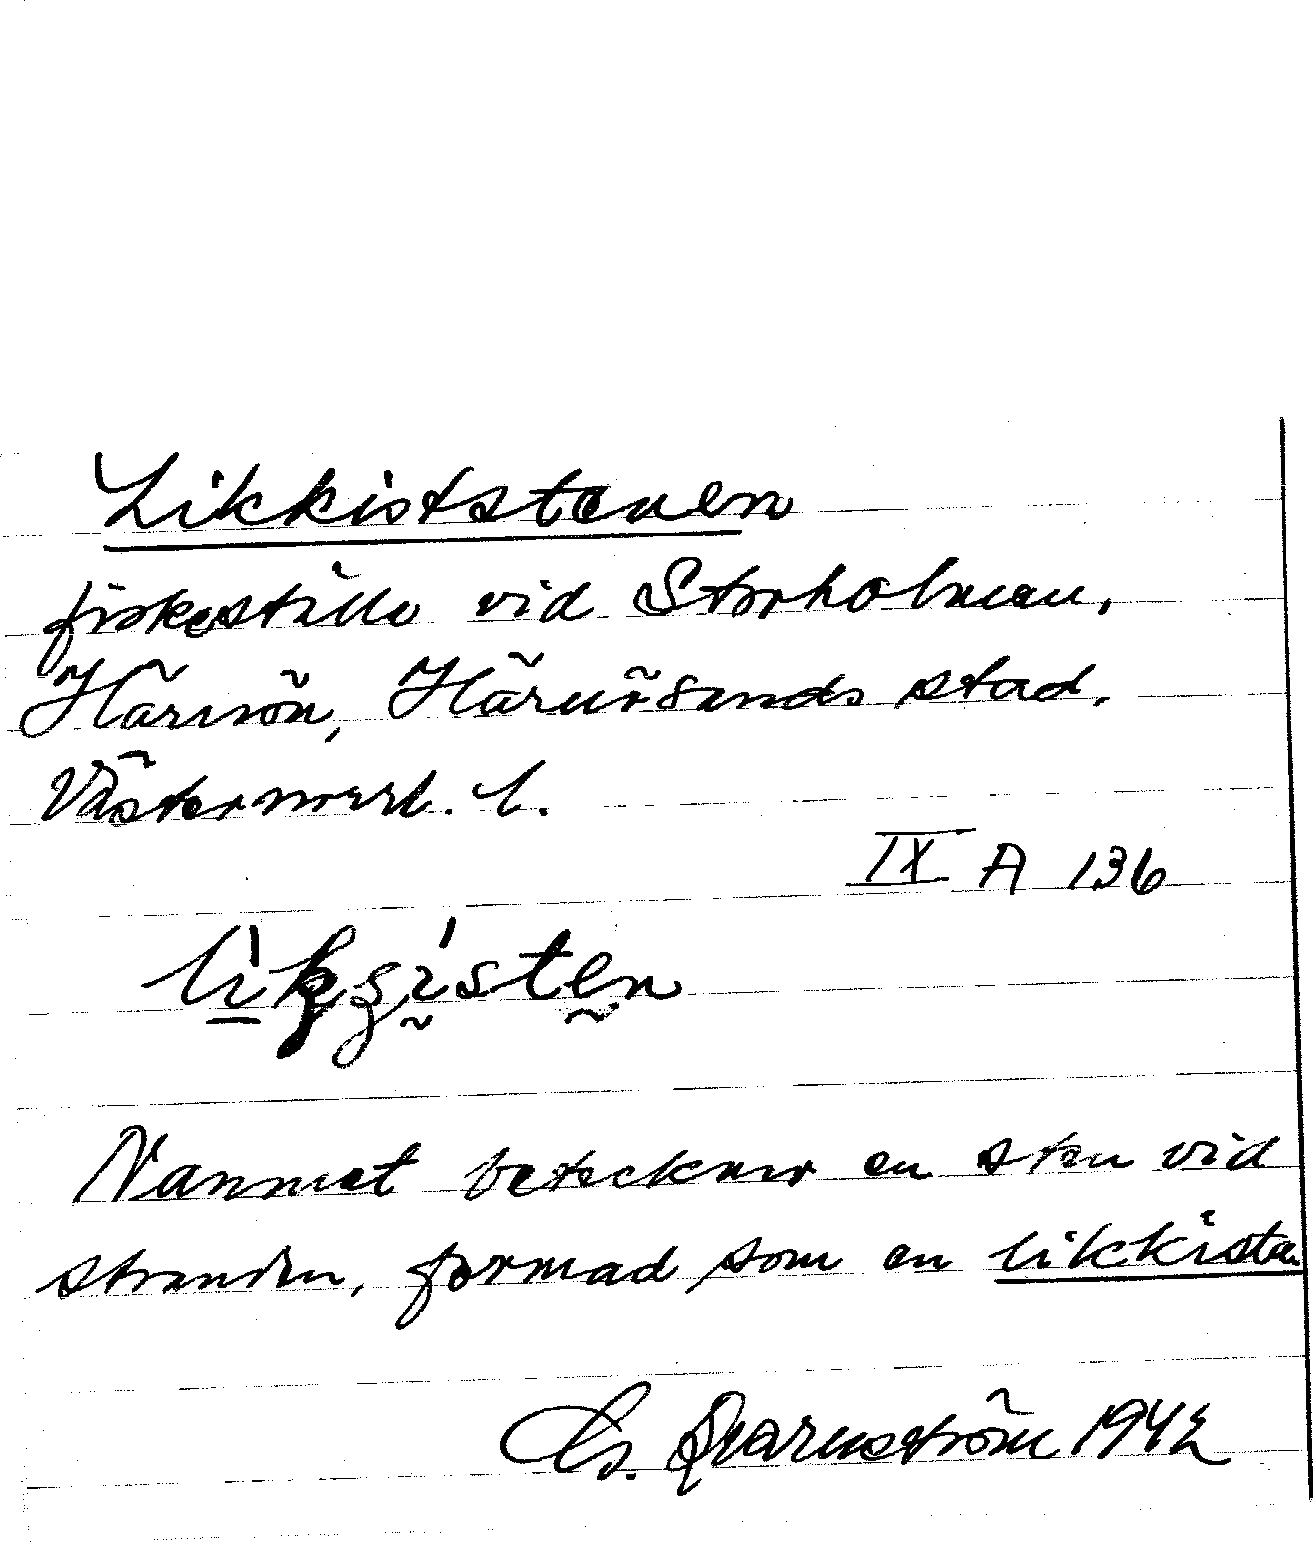 Likkiststenen
fiskeställe vid Storholmen,
Härnön, Härnösands stad,
Västernorrl. l.
IX A 136
Namnet betecknar en sten vid
stranden, formad som en likkista.
Qvarnström 1942